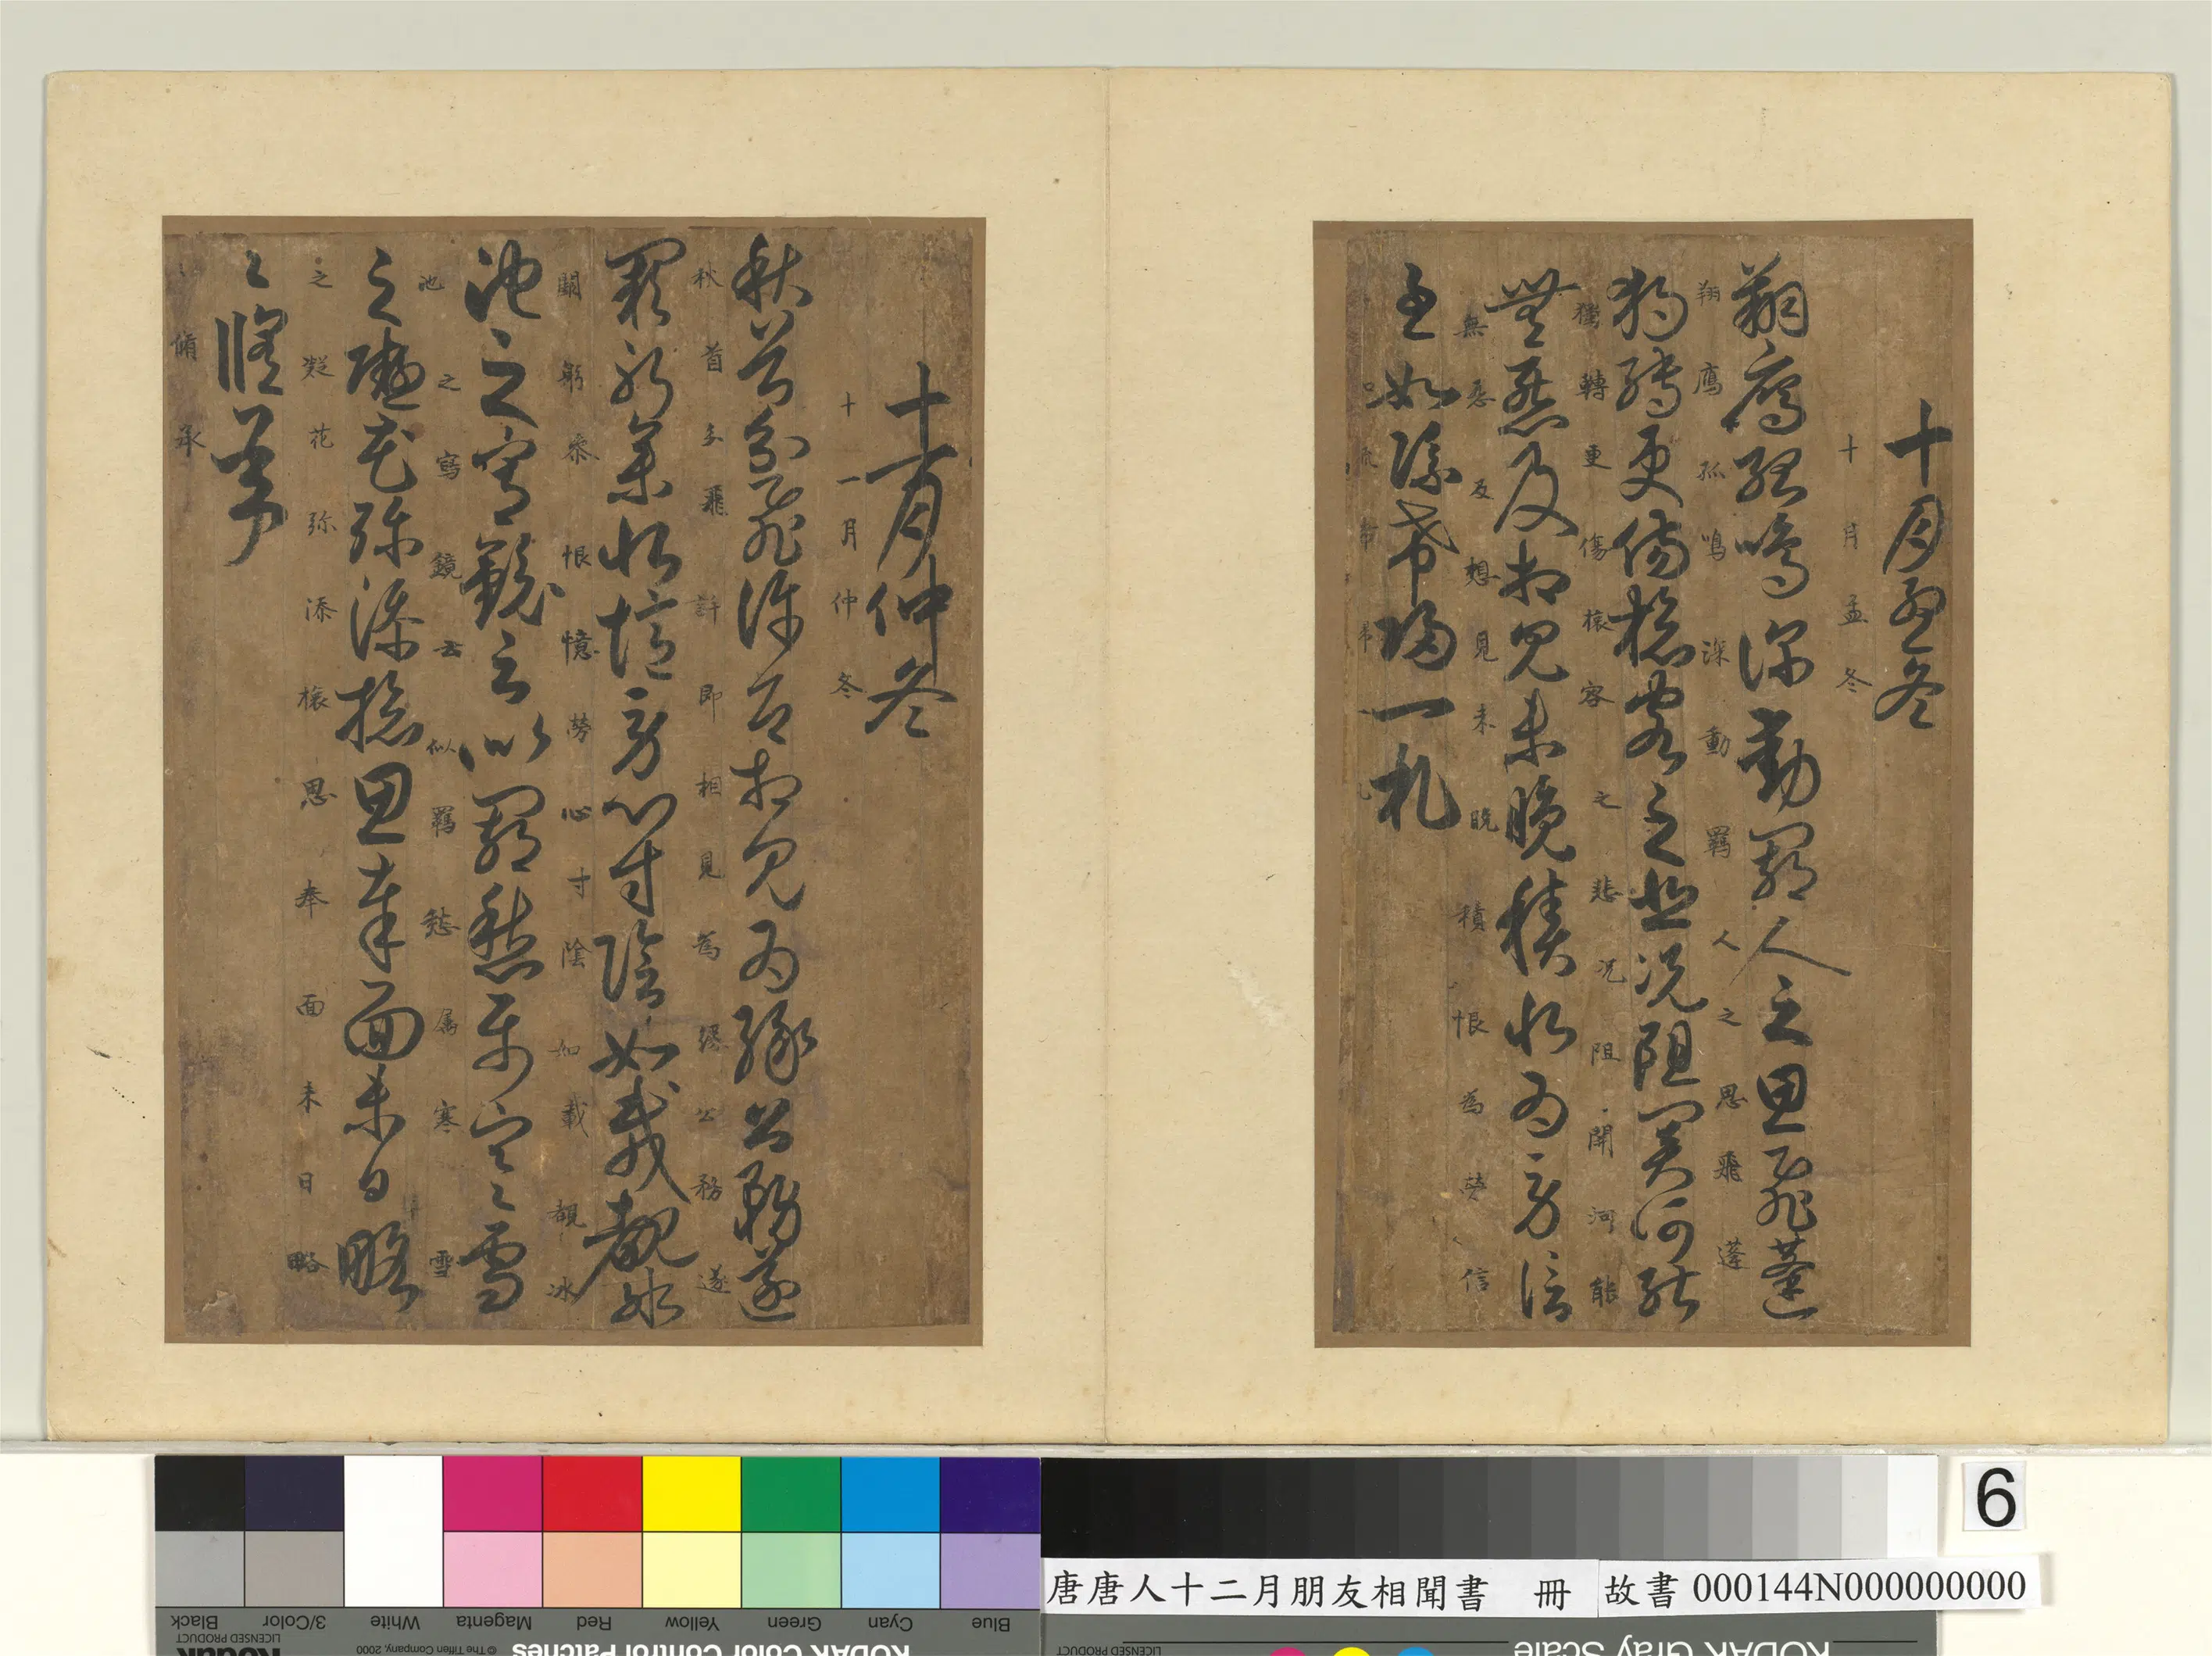 十月孟冬
十月孟冬
翔鷹孤鳴深動羈人之思飛蓬
翔鷹孤鳴深動羈人之思飛蓬
獨轉更傷旅客之悲況阻關河能
獨轉更傷旅客之悲况阻開河能
無戀及相見未晚積恨為勞信
無恋及想見未晚積恨為勞信
至如流希歸一札
十一月仲冬
十一月仲冬
秋首分飛許即相見為緣公務遂
秋首分飛許即相見為緣公務遂
闕躬參恨憶勞心寸陰如載覩冰
闕躬叅恨憶勞心寸陰如載覩冰
池之寫鏡云似羈愁屬寒〻雪
池之寫鏡云似羈愁属寒雪
之凝花弥添旅思奉面未日略
之凝花弥添旅思奉面未日略
〻脩承
〻脩承
6
唐唐人十二月朋友相聞書 冊 故書 000144N000000000
Black 3/Color White Magenta Red Yellow Green Cyan Blue
LICENSED PRODUCT © The Tiffen Company, 2000 LICENSED PRODUCT
Kodak KODAK Color Control Patches KODAK Gray Scale